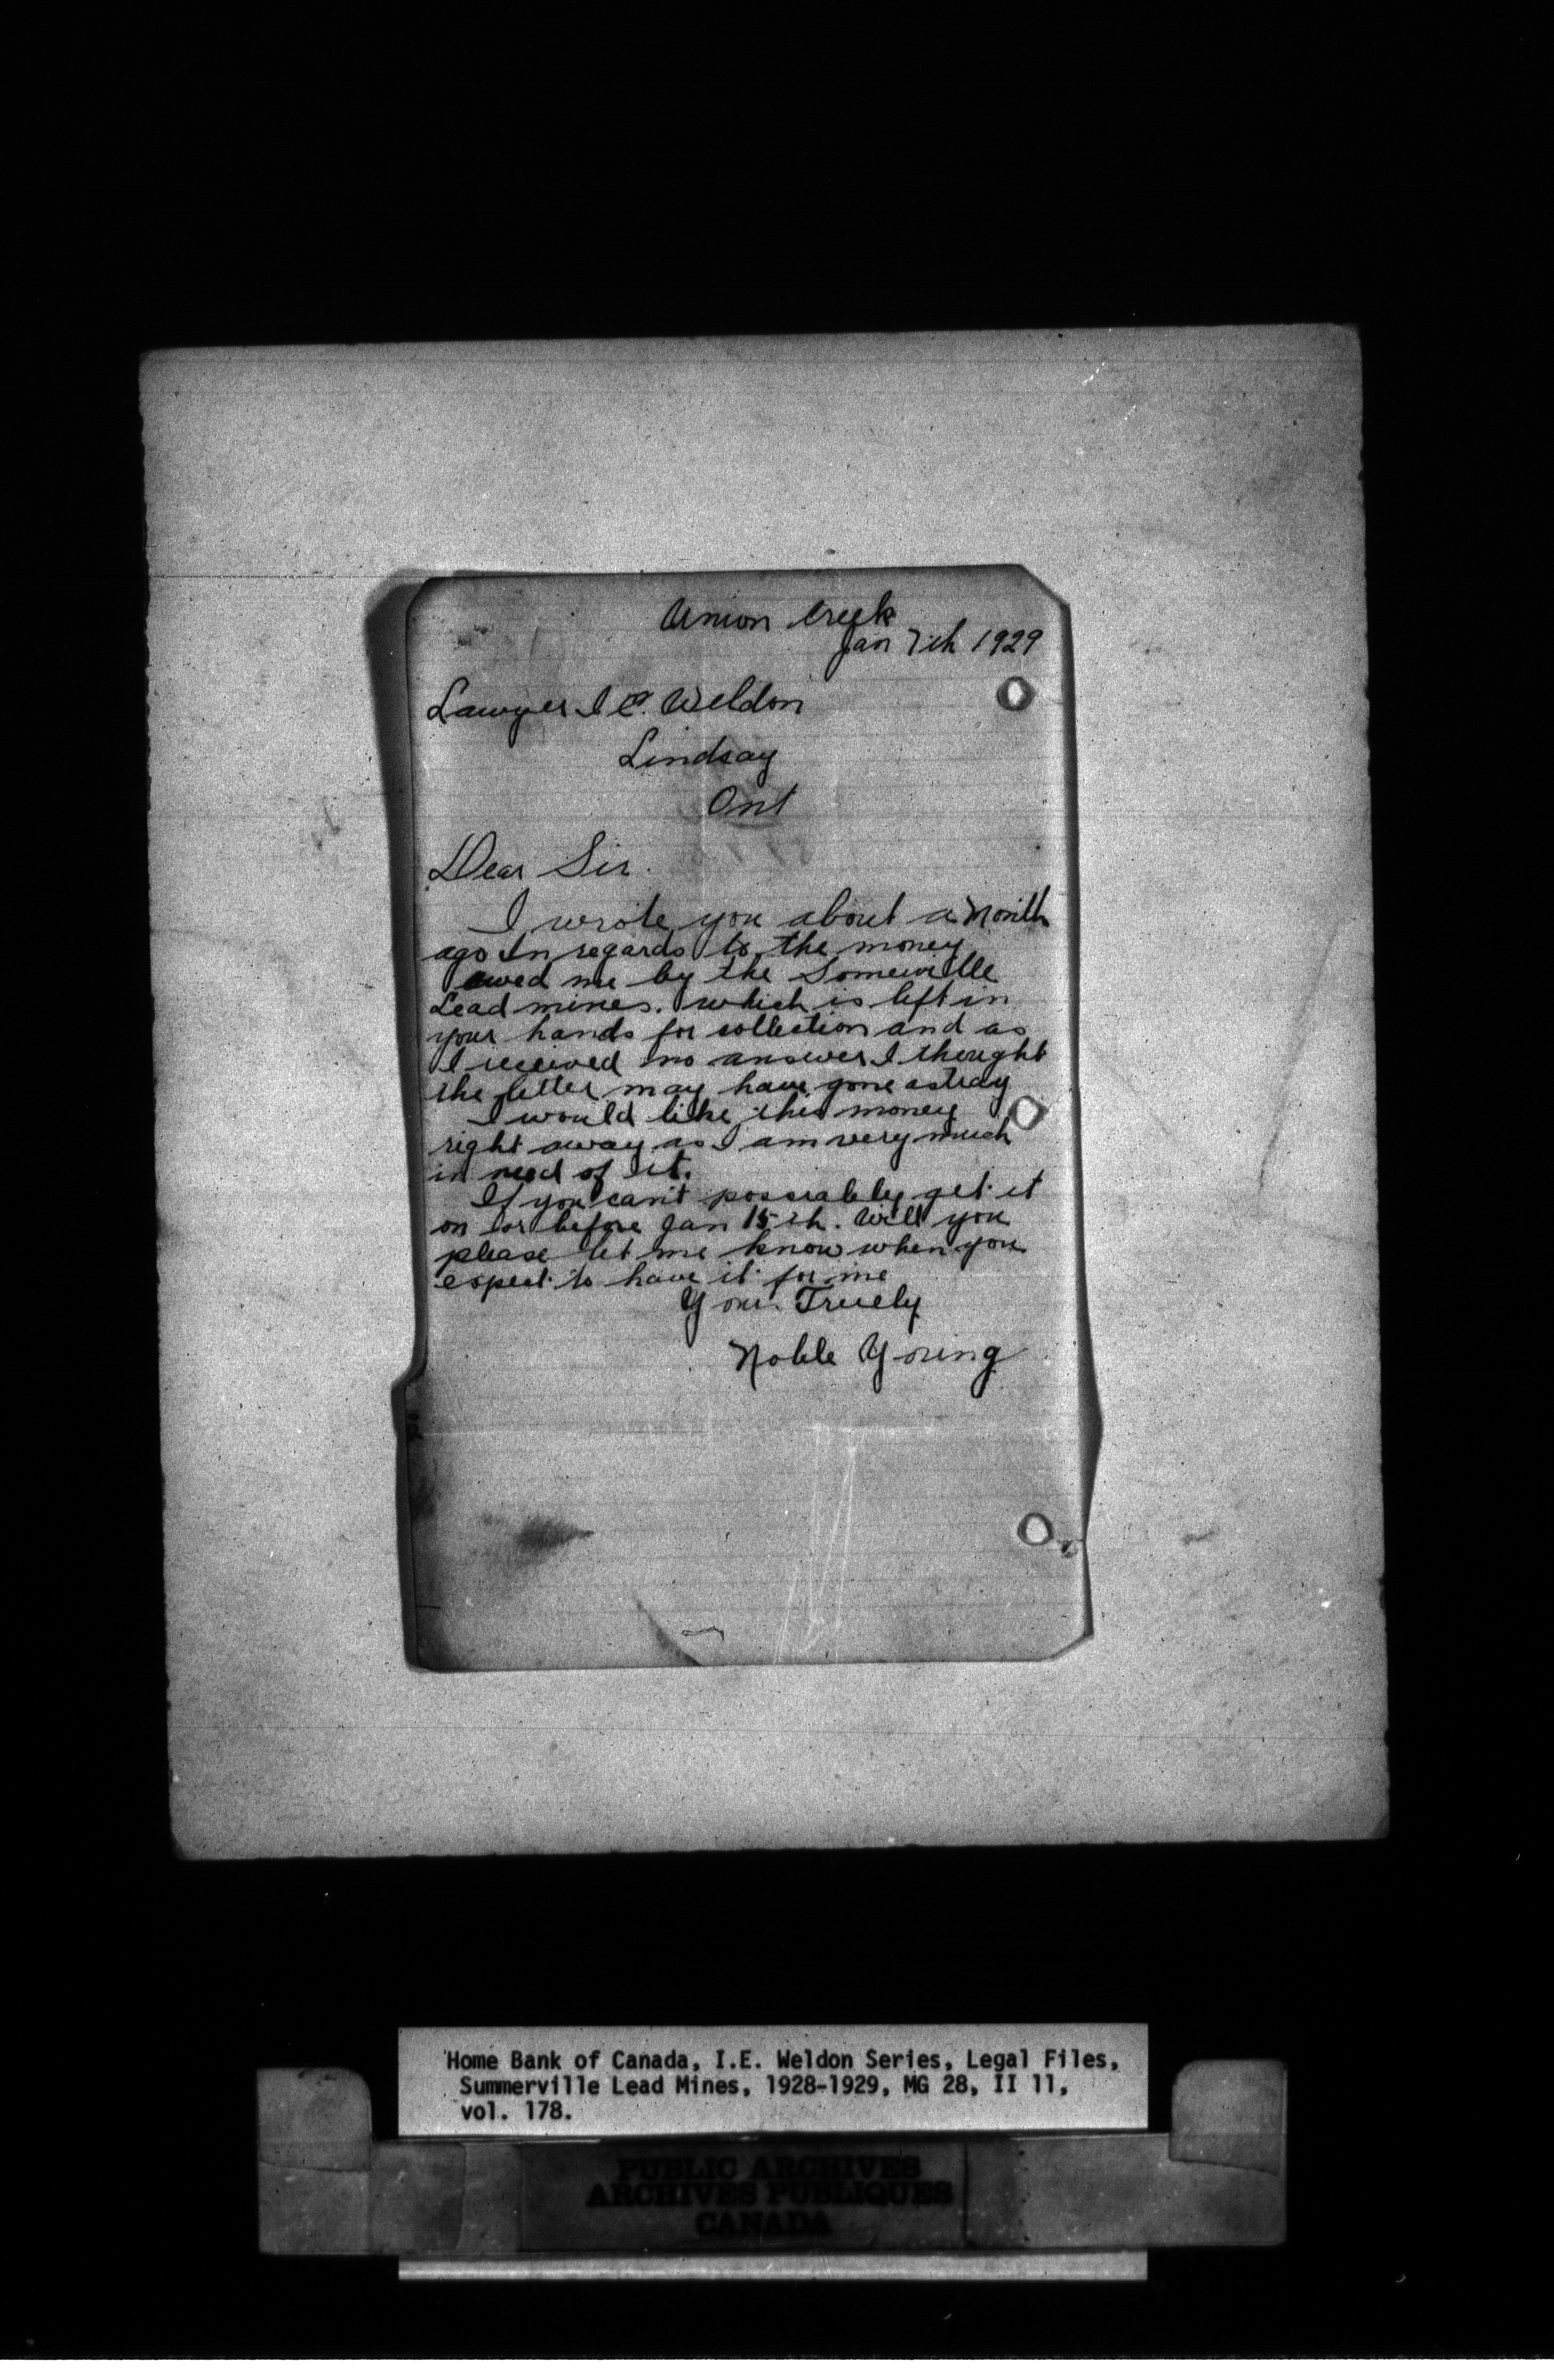 Union Creek
Jan 7th 1929
Lawyer I E. Weldon
Lindsay
Ont
Dear Sir.
I wrote you about a Month
ago In regards to the money
owed me by the Somerville
Lead mines. which is left in
your hands for collection and as
I received no answer I thought
the letter may have gone astray
I would like this money
right away as I am very much
in need of it.
If you can't possiabley get it
on or before Jan 15th. Will you
please let me know when you
expect to have it for me
Your Truely
Noble Young
Home Bank of Canada, I.E. Weldon Series, Legal Files,
Summerville Lead Mines, 1928-1929, MG 28, II 11,
vol. 178.
PUBLIC ARCHIVES
ARCHIVES PUBLIQUES
CANADA